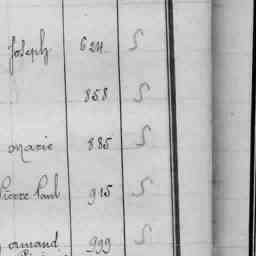 Joseph 624 S
858 S
Marie 885 S
Pierre Paul 915 S
Armand 999 S